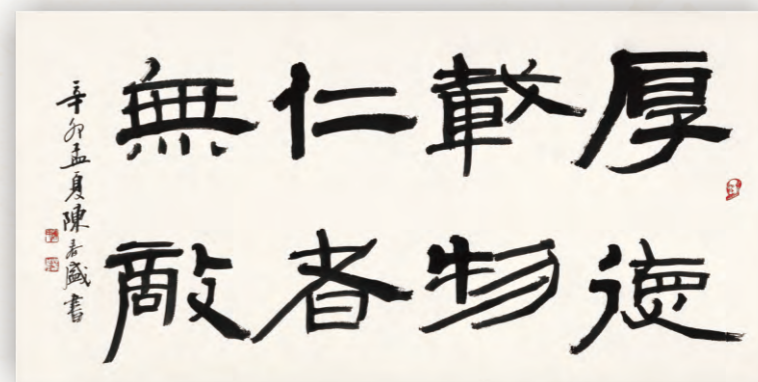 厚德
載物
仁者
無敵
辛卯孟夏陳盛書